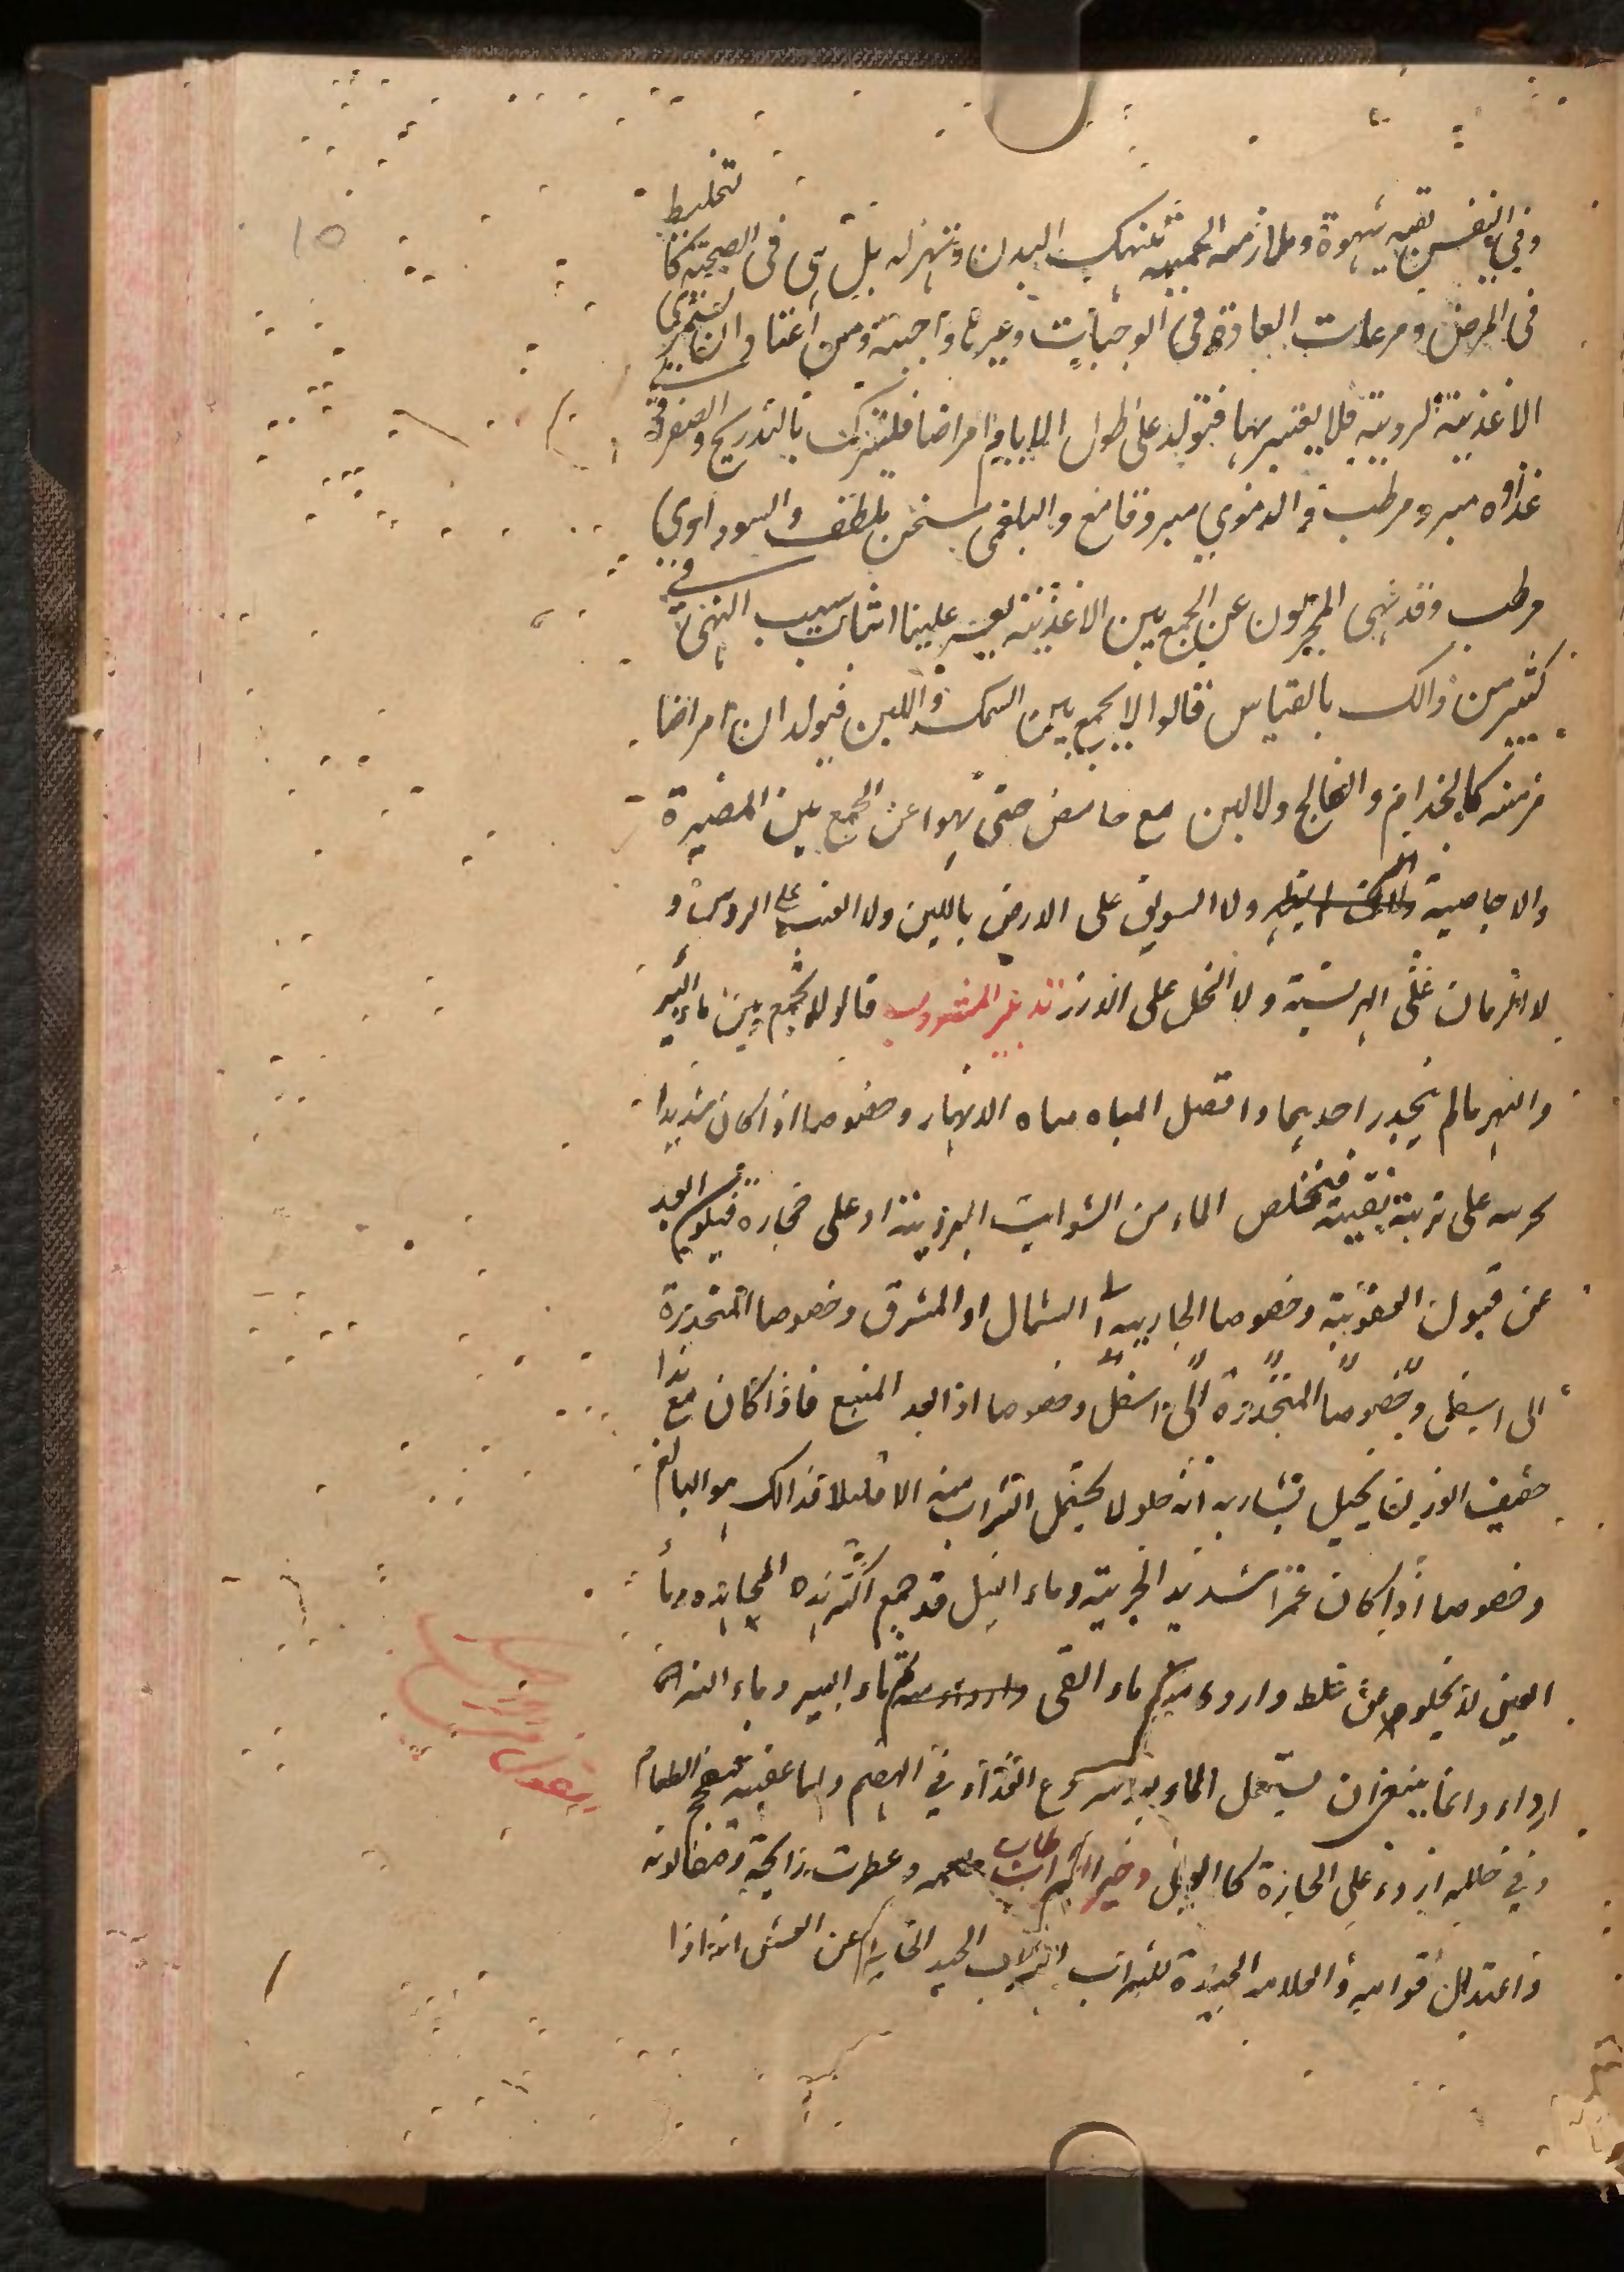 وفي النفس بقيه شهوة وملازمه الحميه تنهك البدن وتهزله بل هى فى الصحة كالتخليط
فى المرض ومرعات العادة فى الوجبات وغيرها واجبة ومن اعتاد ان يستمرى
الاغذية الردية فلا يغتر بها فتولد على طول الايام امراضا فليترك بالتدريج والصفراوى
غذاوه مبرد مرطب و الدموى مبرد قامع والبلغمى مسخن ملطف والسوداوى
مرطب وقد نهى المجربون عن الجمع بين الاغذية يعسر علينا اثبات سبب النهى فى
كثير من ذالك بالقياس قالوا لا يجمع بين السمك واللبن فيولدان امراضا
مزمنه كالجذام والفالج ولا لبن مع حامض حتى نهوا عن الجمع بين المضيرة
والاجاصية ولا السويق على الارض باللبن ولا العنب على الروس و
لا الرمان على الهريسة ولا الخل على الارز تدبير المشروب قالوا لا يجمع بين ماء البير
والنهر مالم ينحدر احديهما وافضل المياه مياه الانهار وخصوصا اذا كان شديدا
جريه على تربة نقيه فيتخلص الماء من الشوايب الرديه او على حجارة فيكون ابعد
عن قبول العفونة وخصوصا الجاريه الى الشمال او المشرق وخصوصا المنحدرة
الى اسفل وخصوصا المنحدرة الى اسفل وخصوصا اذا بعد المنبع فاذا كان مع هذا
خفيف الوزن يخيل لشاربه انه حلو لا يحتمل الشراب منه الا قليلا فذالك هو البالغ
وخصوصا اذا كان غمرا شديد الجرية وماء النيل قد جمع اكثر هذه المحامد وماء
العين لا يخلو من غلظ واردء منه ماء القنى ثم ماء البير وماء النز
ارداء وانما ينبغى ان يستعمل الماء بعد شروع الغذاء فى الهضم واما عقيبه فيفجج الطعام
وفي خلله اردء على الحارة كالويل وخير الشراب ما طاب طعمه وعطرت رايحته وصفا لونه
واعتدل قوامه والعلامة الجيدة للشراب الجيد انه اذا